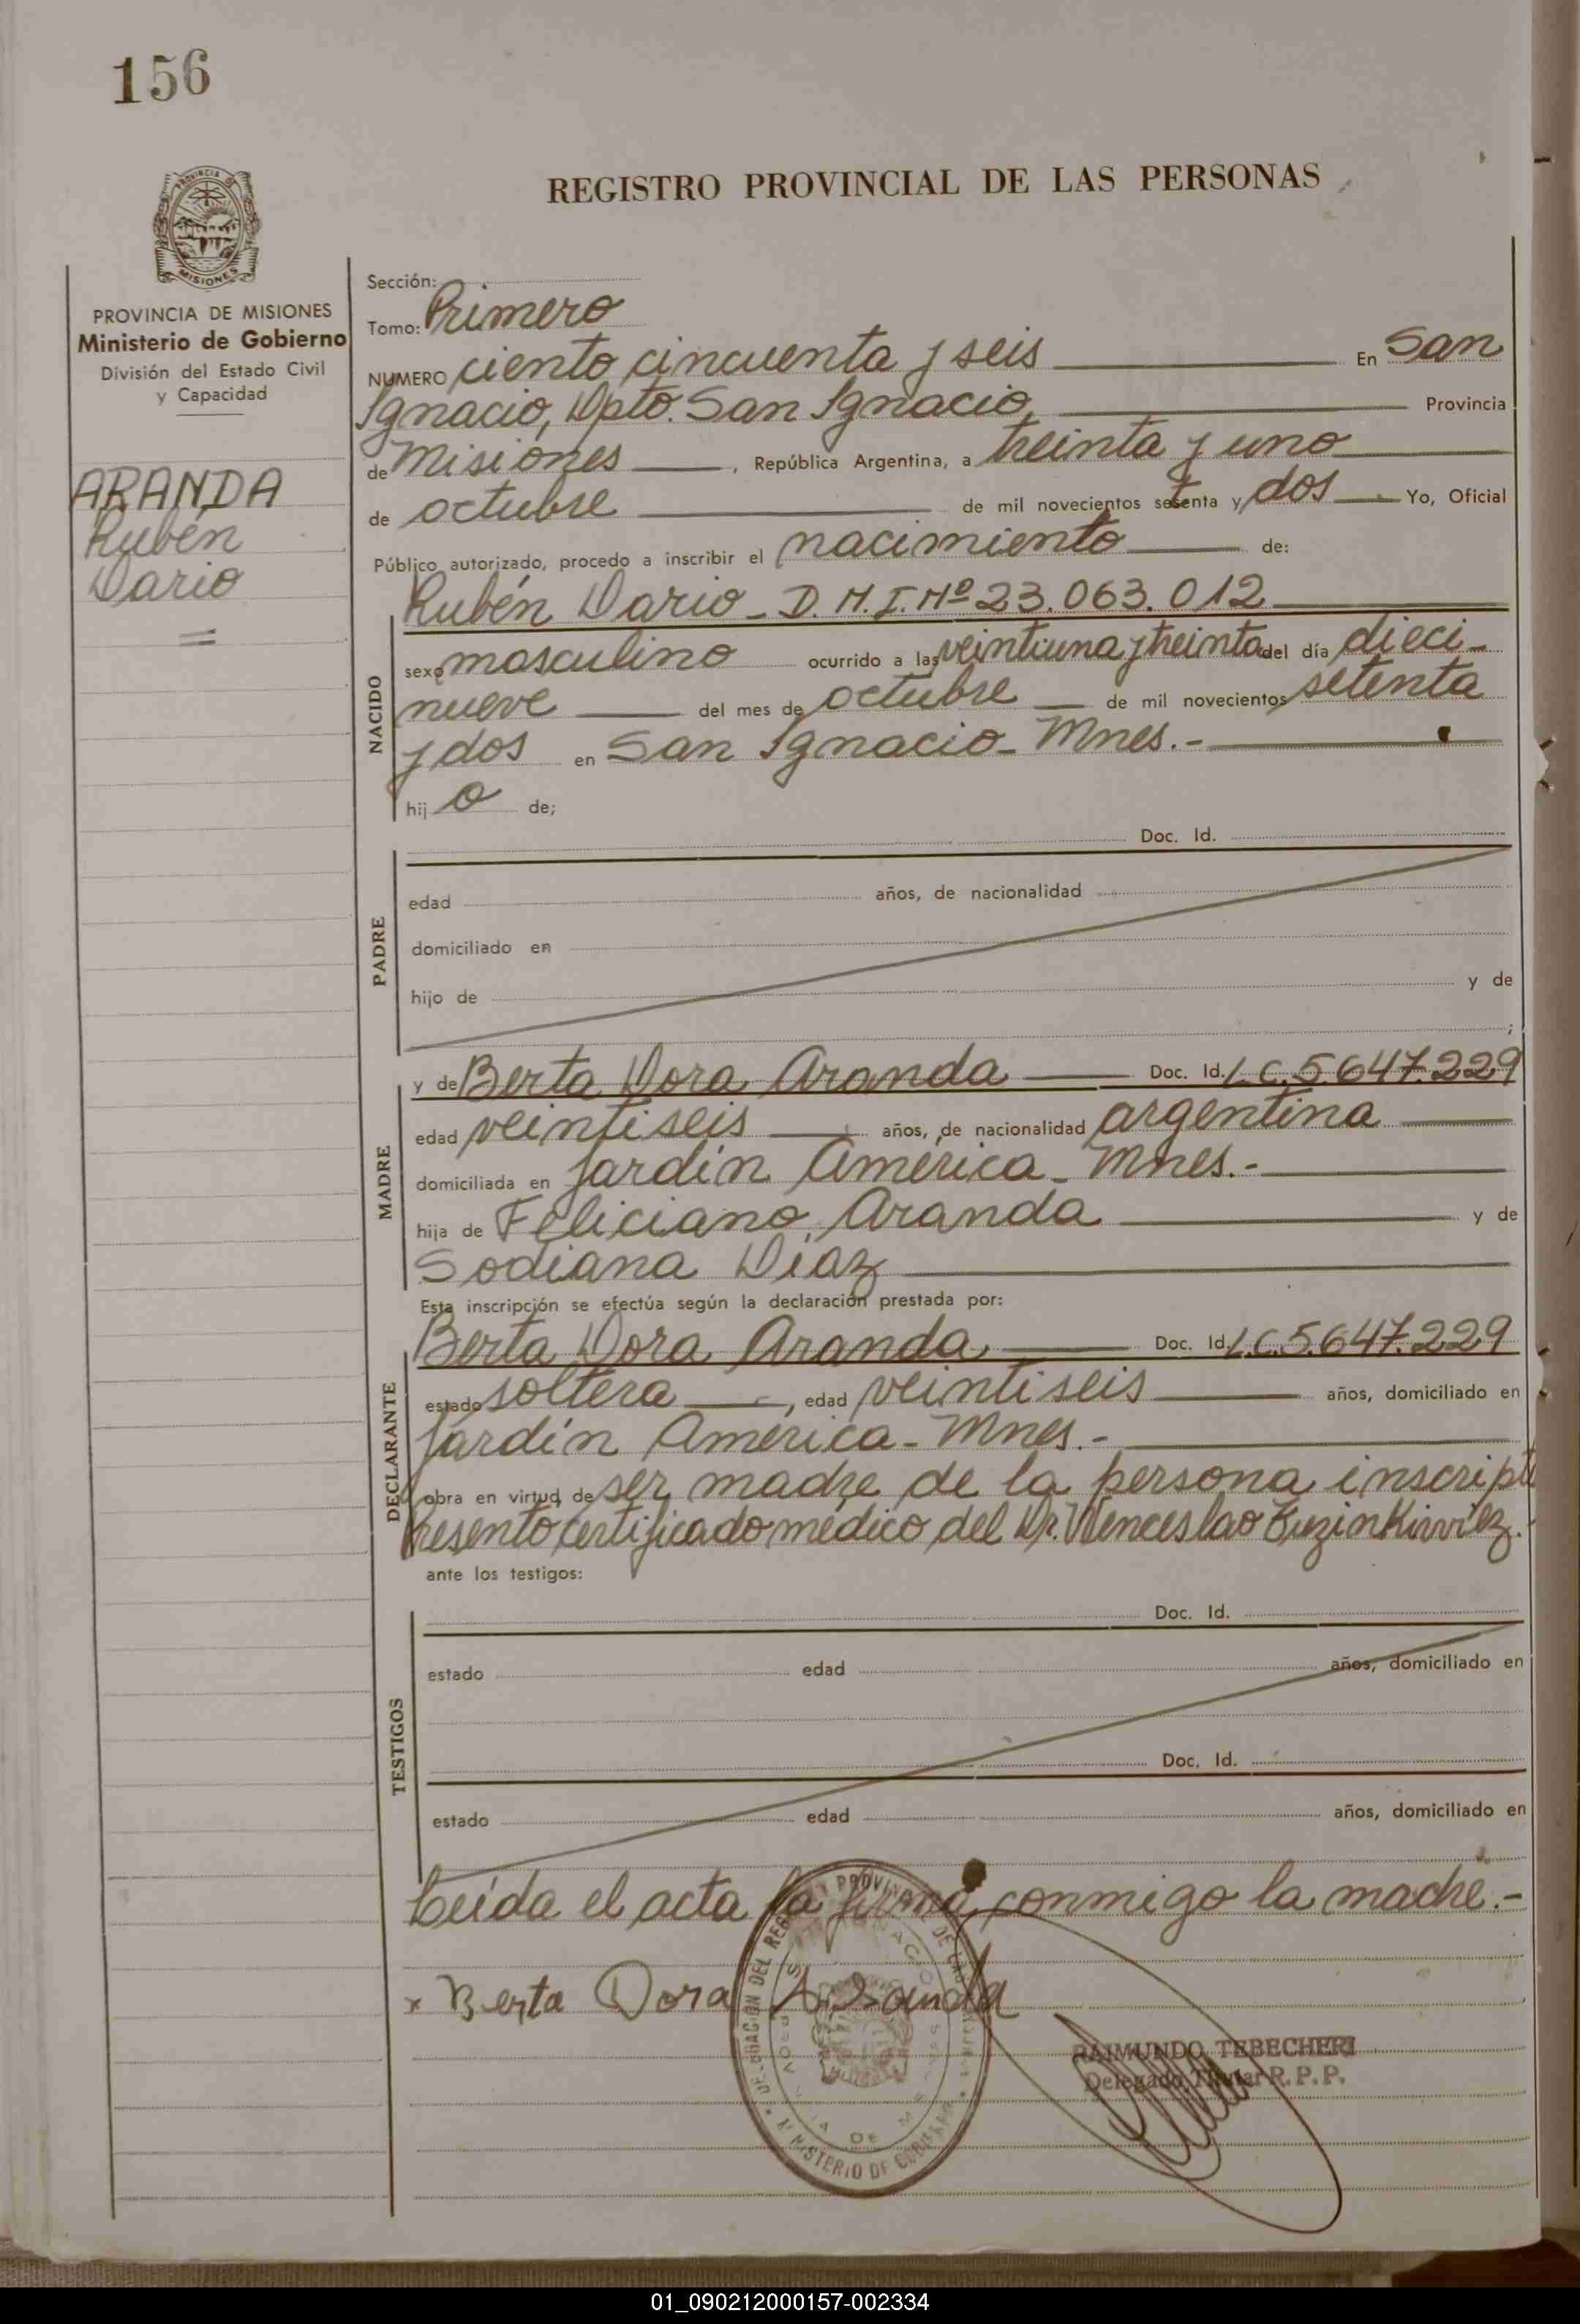 156
REGISTRO PROVINCIAL DE LAS PERSONAS
PROVINCIA DE
MISIONES
PROVINCIA DE MISIONES
Ministerio de Gobierno
División del Estado Civil
y Capacidad
ARANDA
Rubén
Dario
Sección:
Tomo: Primero
NUMERO ciento cincuenta y seis En San
Ignacio, Dpto. San Ignacio, Provincia
de Misiones, República Argentina, a treinta y uno
de octubre de mil novecientos setenta y dos Yo, Oficial
Público autorizado, procedo a inscribir el nacimiento de:
NACIDO
Rubén Dario - D. N. I. Nº 23.063.012
sexo masculino ocurrido a las veintiuna y treinta del día dieci-
nueve del mes de octubre de mil novecientos setenta
y dos en San Ignacio - Mnes.-
hij o de;
PADRE
Doc. Id.
edad años, de nacionalidad
domiciliado en
hijo de y de
;
MADRE
y de Berta Dora Aranda Doc. Id. L.C. 5.647.229
edad veintiseis años, de nacionalidad argentina
domiciliada en Jardín América - Mnes.-
hija de Feliciano Aranda y de
Sodiana Díaz
Esta inscripción se efectúa según la declaración prestada por:
DECLARANTE
Berta Dora Aranda Doc. Id. L.C. 5.647.229
estado soltera, edad veintiseis años, domiciliado en
Jardín América - Mnes.-
obra en virtud de ser madre de la persona inscripta
Presentó certificado médico del Dr. Wenceslao
ante los testigos:
TESTIGOS
Doc. Id.
estado edad años, domiciliado en
Doc. Id.
estado edad años, domiciliado en
Leída el acta la firma conmigo la madre.-
x Berta Dora Aranda
RAIMUNDO TEBECHERI
Delegado Titular R. P. P.
MINISTERIO DE GOBIERNO
01_090212000157-002334